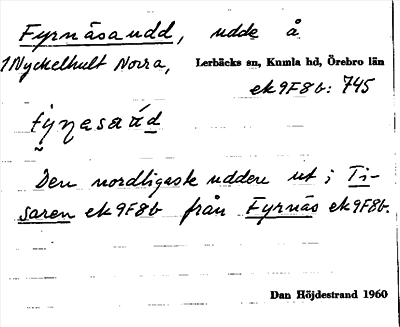 Fyrnäsaudd, udde å
1 Nyckelhult Norra, Lerbäcks sn, Kumla hd, Örebro län
ek 9F8b: 745
Den nordligaste udden ut i Ti-
saren ek 9F8b från Fyrnäs ek 9F8b.
Dan Höjdestrand 1960